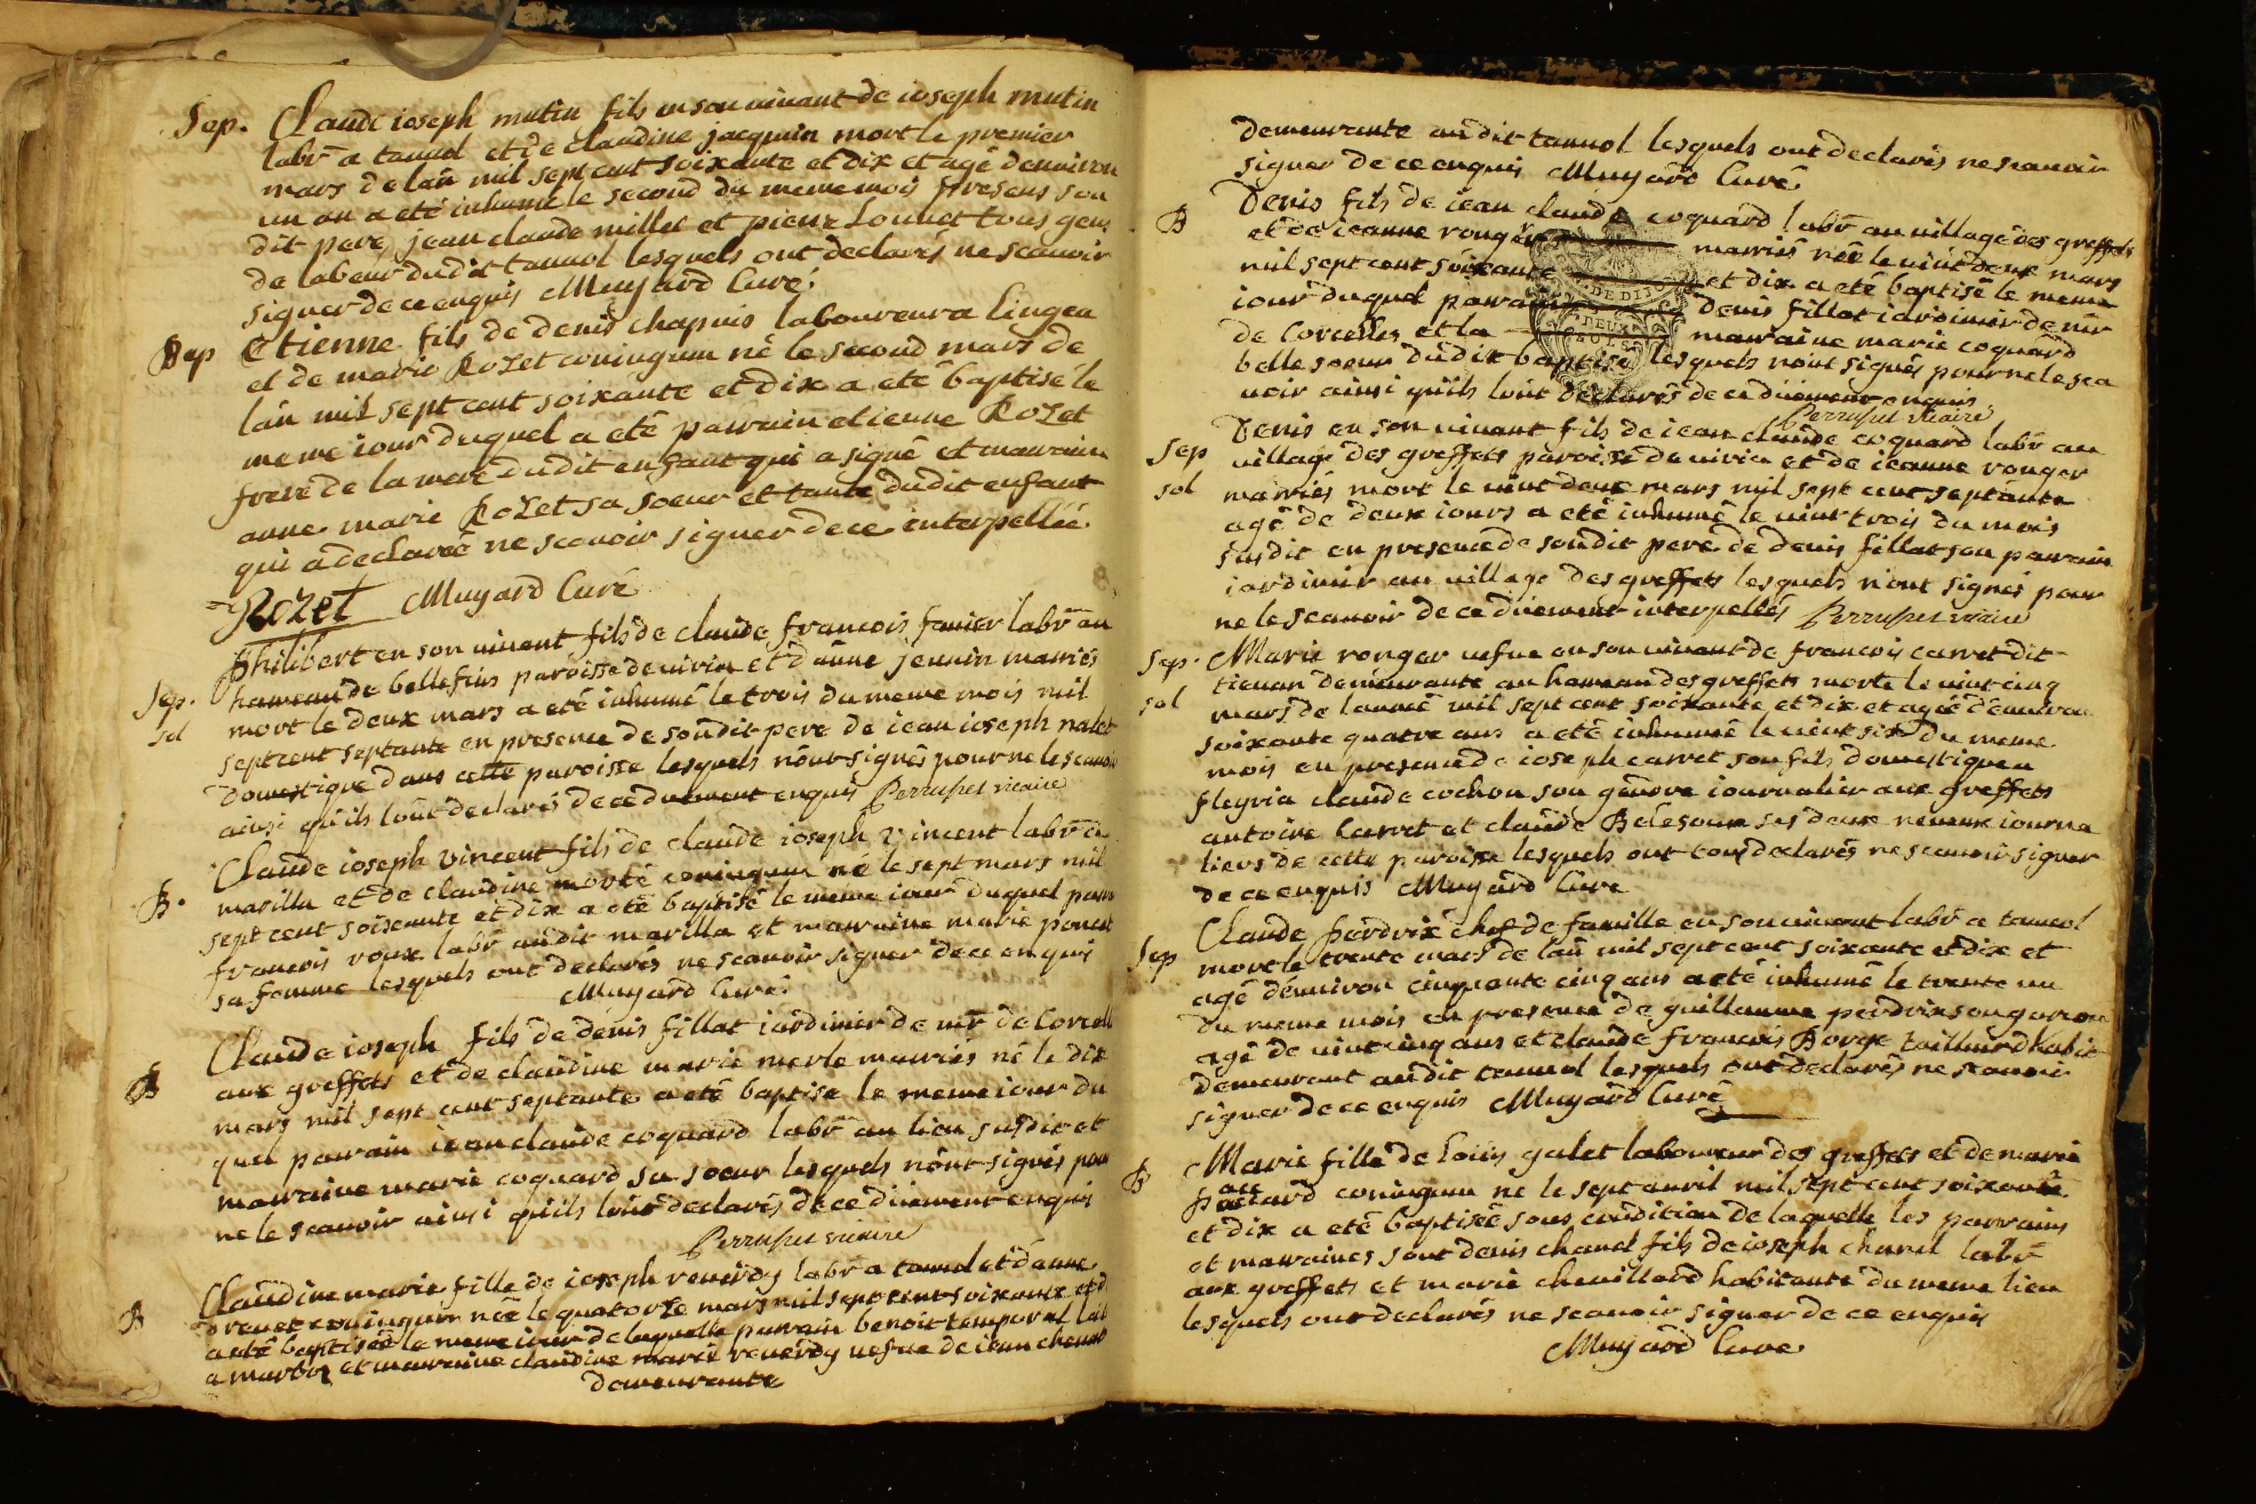 Sep. Claude ioseph mutin fils en son vivant de ioseph mutin
labr a tannol et de claudine jacquin mort le premier
mars de lan mil sept cent soixante et dix et agé denviron
un an a eté inhumé le second du meme mois presens son
dit pere, jean claude millet et pierre Louuet tous gens
de labeur dudit tannol lesquels ont declarés ne scauoir
signer de ce enquis Muyard Curé
Bap Etienne fils de denis chapuis laboureur a Lingea
et de marie Rozet coniugum né le second mars de
lan mil sept cent soixante et dix a eté baptisé le
meme iour duquel a eté parrain etienne Rozet
frere de la mere dudit enfant qui a signé et marraine
anne marie Rozet sa soeur et tante dudit enfant
qui a declareé ne scavoir signer de ce interpellée
Rozet Muyard Curé
Philibert en son vivant fils de claude francois fanier labr au
Sep. hameau de bellefins paroisse de viria et d'anne jeunin marriés
sol mort le deux mars a eté inhumé le trois du meme mois mil
sept cent septante en presence de soudit pere de iean ioseph nalet
domestique dans cette paroisse lesquels n'ont signés pour ne le scauoir
ainsi qu'ils l'ont declarés de ce duement enquis Perrusset vicaire
Claude ioseph vincent fils de claude ioseph vincent labr a
B. marilla et de claudine morté coniugum né le sept mars mil
sept cent soixante et dix a eté baptisé le meme iour duquel parr
francois roux labr audit marilla et marraine marie poncet
sa femme lesquels ont declarés ne scauoir signer de ce enquis
Muyard Curé
Claude ioseph fils de denis fillat iardinier de mr de Corcell
B aux greffets et de claudine marie merle marriés né le dix
mars mil sept cent septante a eté baptisé le meme iour du
quel parrain iean claude coquard labr au lieu susdit et
marraine marie coquard sa soeur lesquels n'ont signés pour
ne le scauoir ainsi qu'ils l'ont declarés de ce duement enquis
Perrusset vicaire
Claudine marie fille de ioseph reverdy labr a tannol et d'anne
B drevet coniugum née le quatorze mars mil sept cent soixante et d
a eté baptiseé le meme iour de laquelle parrain benoit temporal lab
a marboz et marraine claudine marie reverdy vefve de iean
demeurante
demeurante audit tannol lesquels ont declarés ne scauoir
signer de ce enquis Muyard Curé
B Denis fils de iean claude coquard labr au village des greffets
et de ieanne ronger marriés né le vint deux mars
mil sept cent soixante et dix a eté baptisé le meme
iour duquel parrain denis fillat iardinier de mr
de Corcelles et la marraine marie coquard
belle soeur dudit baptisé lesquels n'ont signés pour ne le sca
voir ainsi qu'ils l'ont declarés de ce duement enquis
Perrusset vicaire
DE DIJON
DEUX
SOLS
Denis en son vivant fils de iean claude coquard labr au
Sep village des greffets paroisse de viria et de ieanne ronger
sol marriés mort le vint deux mars mil sept cent septante
agé de deux iours a eté inhumé le vint trois du mois
susdit en presence de soudit pere de denis fillat son parrain
iardinier au village des greffets lesquels n'ont signés pour
ne le scauoir de ce duement interpellés Perrusset vicaire
Sep. Marie ronger vefve en son vivant de francois carret dit
sol demeurante au hameau des greffets morte le vint cinq
mars de l'année mil sept cent soixante et dix et agée d'environ
soixante quatre ans a eté inhumée le vint six du meme
mois en presence de ioseph carret son fils domestique a
fleyria claude cochon son gendre iournalier aux greffets
antoine Carret et claude ses deux neveux iourna
liers de cette paroisse lesquels ont tous declarés ne scauoir signer
de ce enquis Muyard Cure
Claude perdrix chef de famille en son vivant labr a tannol
Sep mort le trente mars de lan mil sept cent soixante et dix et
agé d'environ cinquante cinq ans a eté inhumé le trente un
du meme mois en presence de guillaume perdrix son garcon
agé de vint cinq ans et claude francois Borge tailleur d'habit
demeurant audit tannol lesquels ont declarés ne scauoir
signer de ce enquis Muyard Curé
Marie fille de Loüis galet laboureur des greffets et de marie
B coniugum ne le sept avril mil sept cent soixante
et dix a eté baptiseé sous condition de laquelle les parrains
et marraines sont denis chanel fils de ioseph chanel labr
aux greffets et marie chevillard habitante du meme lieu
lesquels ont declarés ne scauoir signer de ce enquis
Muyard Cure